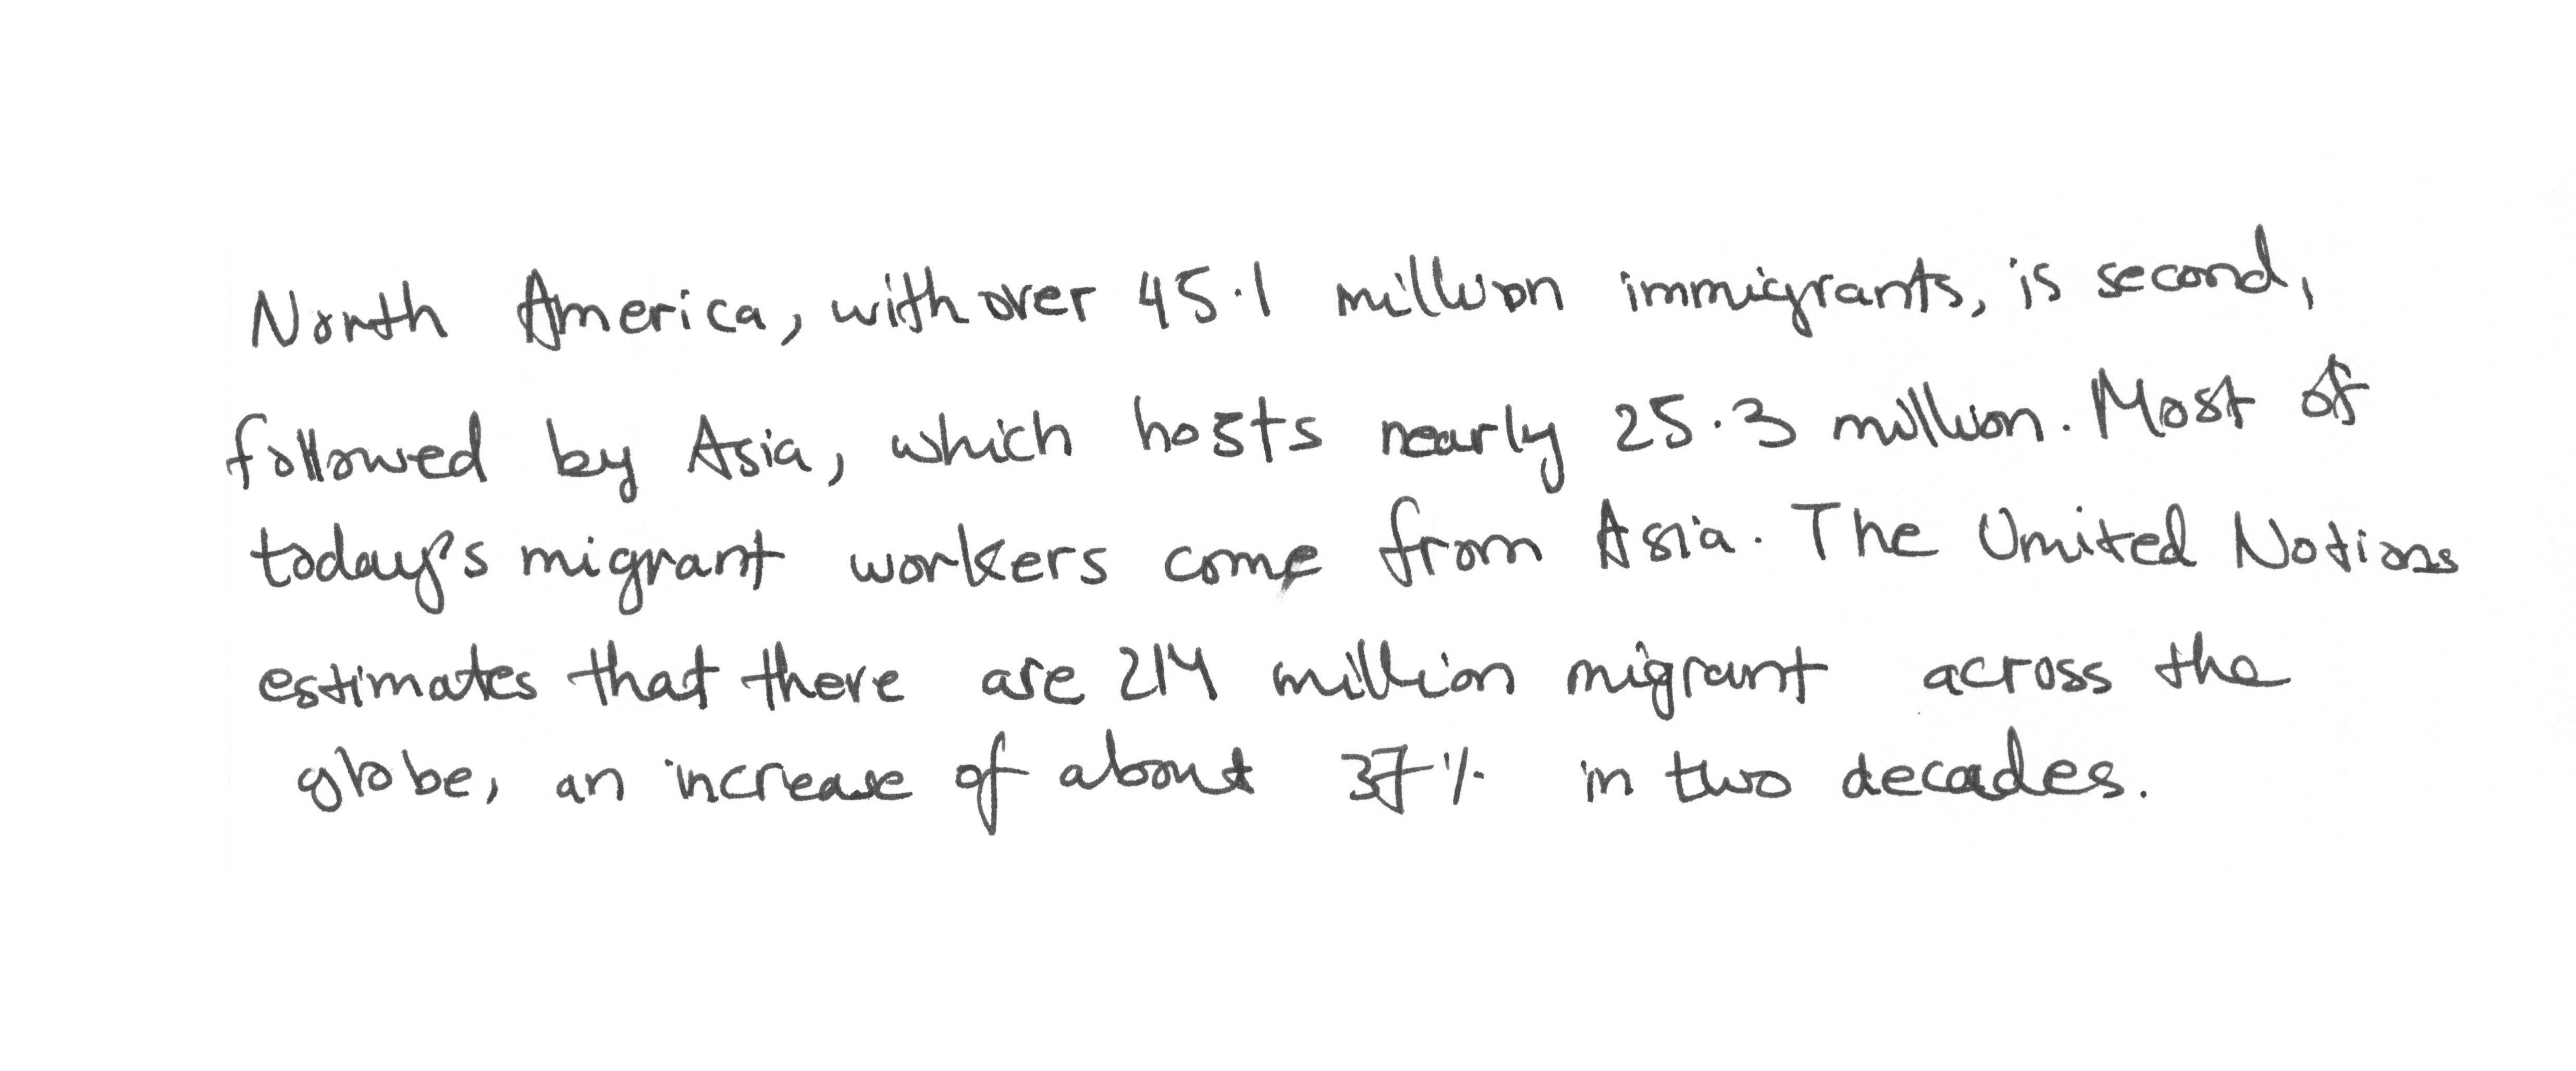 North America, with over 45.1 million immigrants, is second,
followed by Asia, which hosts nearly 25.3 million. Most of
today's migrant workers come from Asia. The United Nations
estimates that there are 214 million migrant across the
globe, an increase of about 37% in two decades.